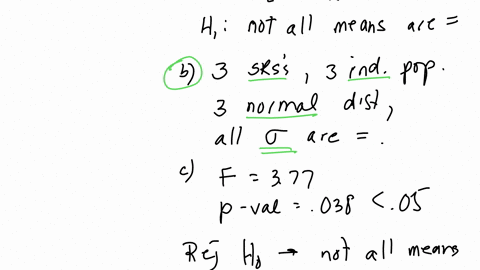 H₁: not all means are =
b) 3 SRS's, 3 ind. pop.
3 normal dist,
all σ are = .
c) F = 3.77
p-val = .038 < .05
Rej H₀ → not all means